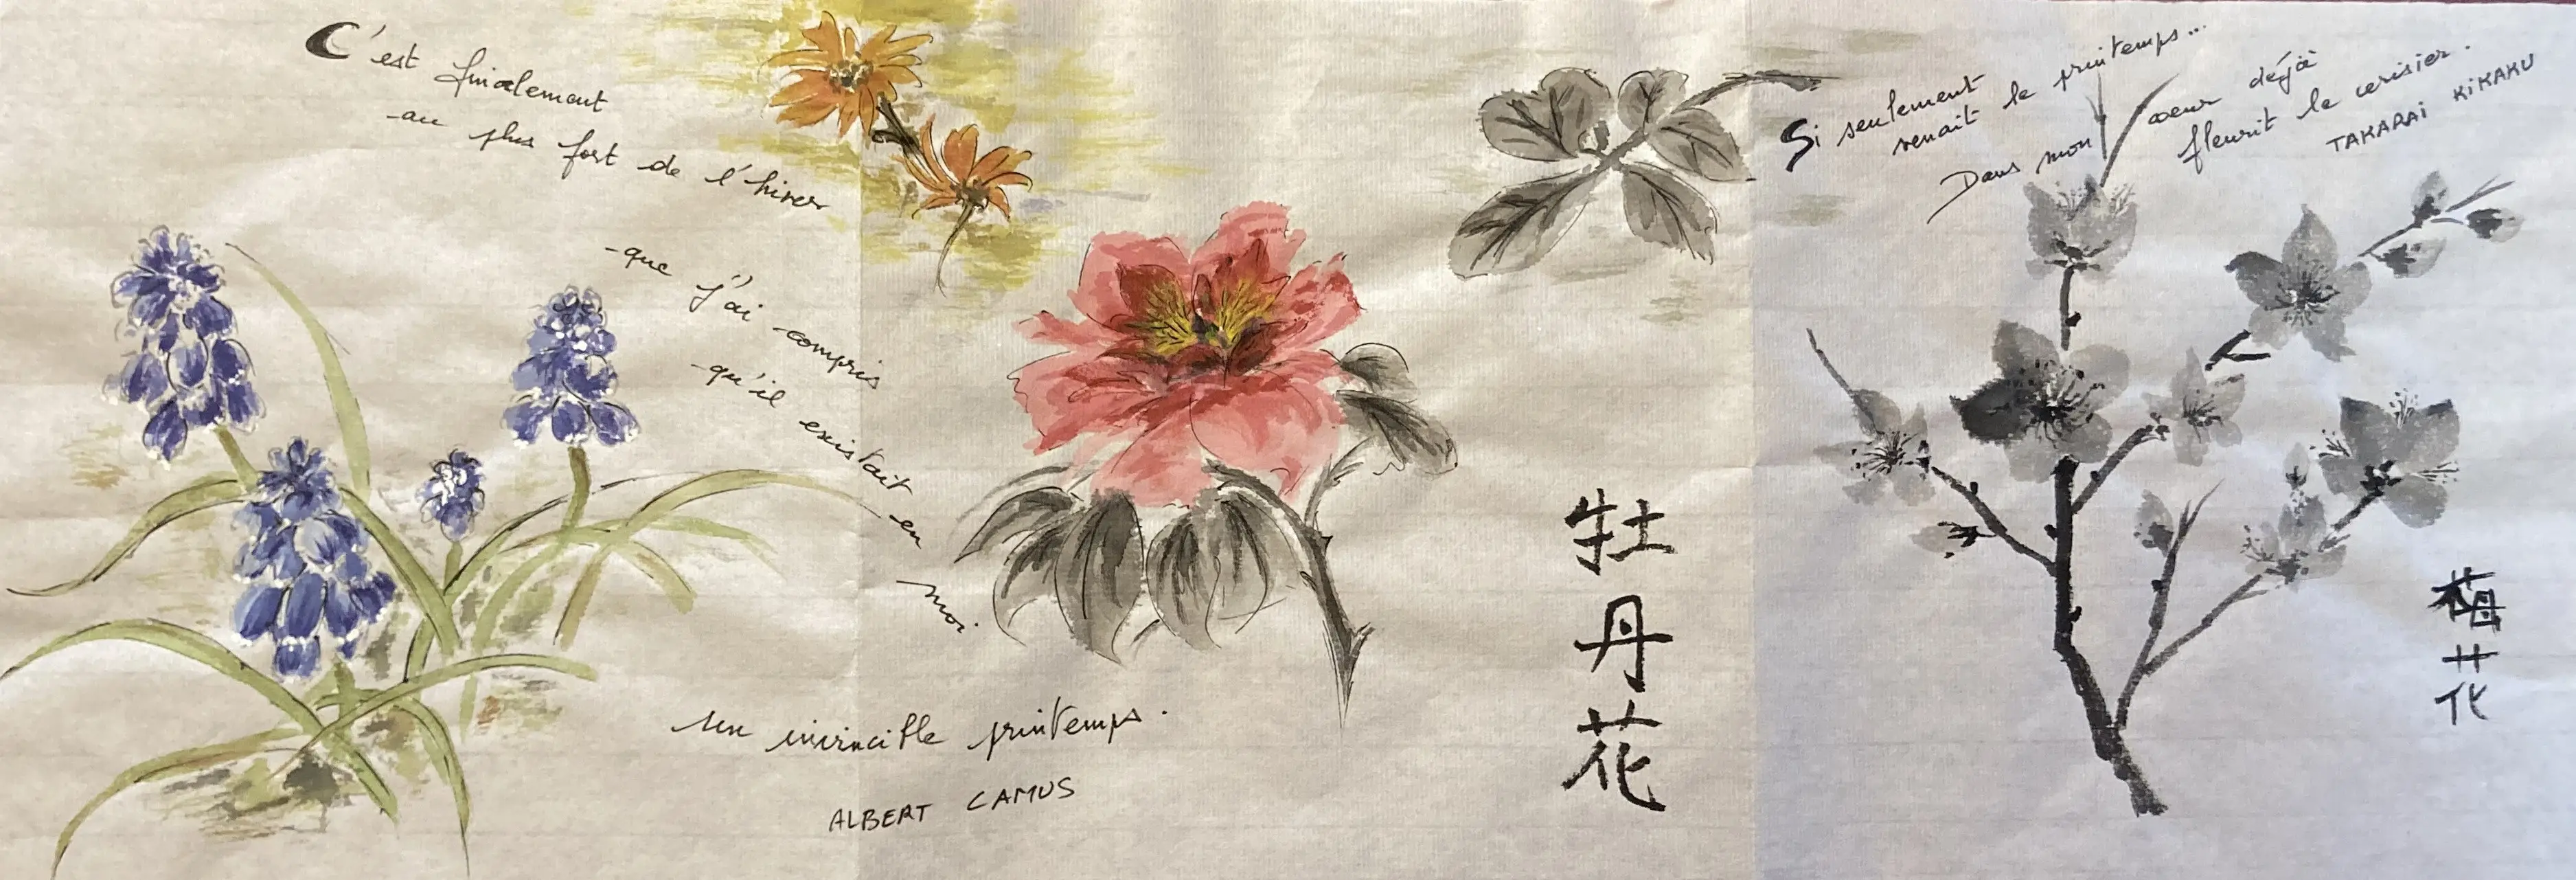 C'est finalement
au plus fort de l'hiver
-que j'ai compris
-qu'il existait en
moi
un invincible printemps.
ALBERT CAMUS
牡丹花
Si seulement
venait le printemps...
Dans mon coeur déjà
fleurit le cerisier.
TAKARAI KIKAKU
梅花